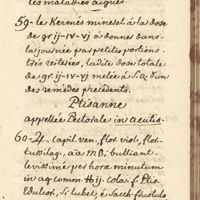 les maladies aigues.
59- le Kermés mineral à la dose
de gr ij-iv-vj à donner dans
la journée par petites portions
trés reiterées, ladite dose totale
de gr. ij-iv-vj melée à S.q. d'un
des remedes precedents.
Ptisanne
appellée Pectorale in acutis.
60-24. Capil. ven. flor. viol. flor.
tussilag. a a m ß; bulliant
levissimè per horæ minutum
in aq. comm. ℔ij. Cola: f. Ptis.
Edulcor, si lubet, è Sacch.